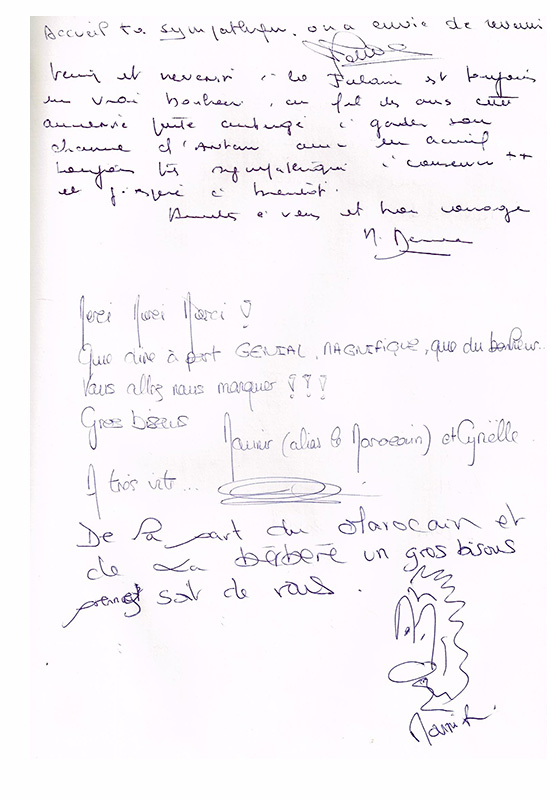 Accueil très sympathique, on a envie de revenir
venir et revenir à la est toujours
un vrai bonheur, au fil des ans cette
petite auberge à garder son
charme d'Antan avec un accueil
toujours très sympathique à conserver ++
et j'espère à bientôt.
à vous et bon courage
Merci Merci Merci !
Que dire à part GENIAL, MAGNIFIQUE, que du bonheur...
Vous allez nous manquer !!!
Gros bisous
Mounir (alias le Marocain) et Cyrielle
A très vite...
De la part du Marocain et
de La bèrbère un gros bisous
soit de vous.